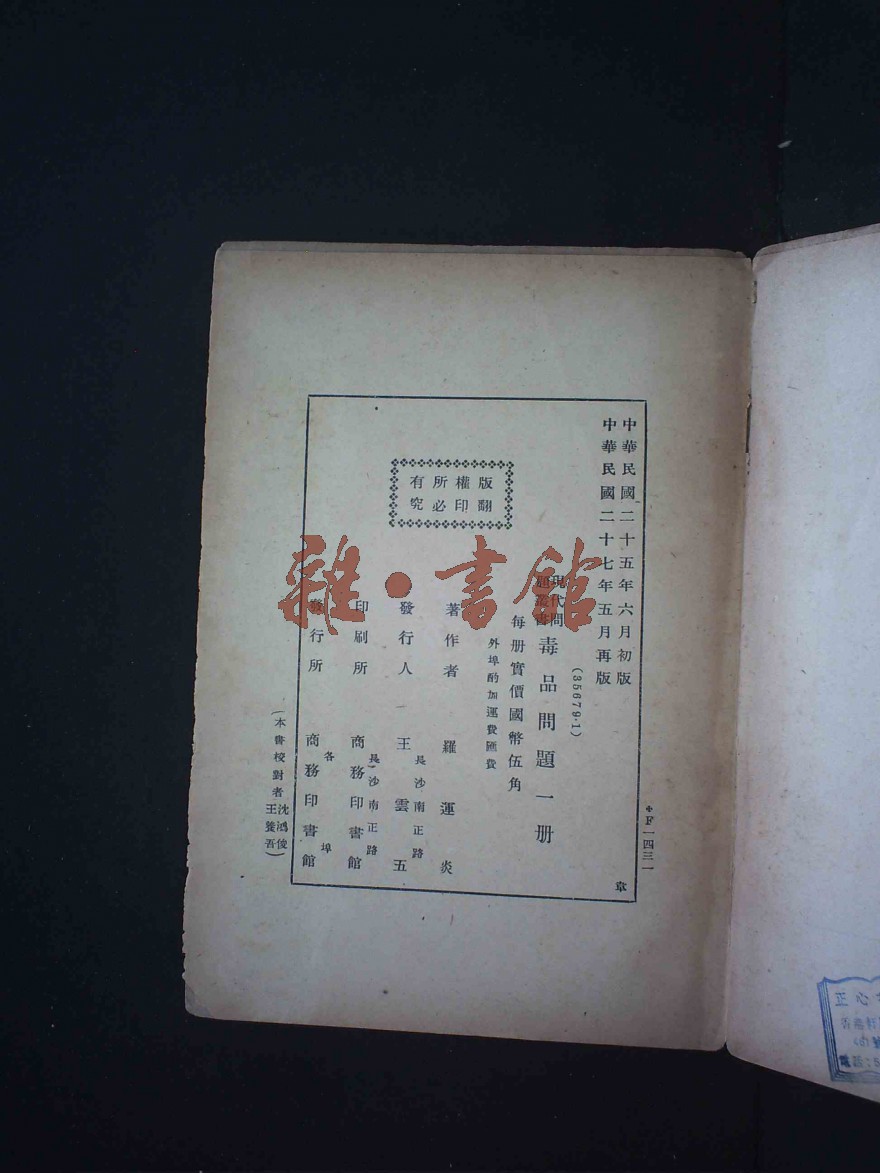 中華民國二十五年六月初版
中華民國二十七年五月再版
(35679·1)
現代問
題叢書
毒品問題一册
每册實價國幣伍角
外埠酌加運費匯費
版權所有
翻印必究
著作者 羅運炎
發行人 王雲五
長沙南正路
印刷所 商務印書館
長沙南正路
發行所 商務印書館
各埠
(本書校對者沈鴻俊
王養吾)
F一四三一
章
雜·書館
正心
香港軒
電話:5